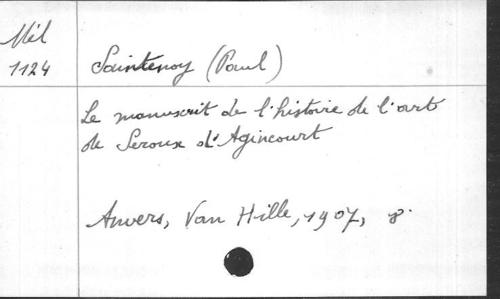 Mél
1124
Saintenoy (Paul)
Le manuscrit de l'histoire de l'art
de Seroux d'Agincourt
Anvers, Van Hille, 1907, 8°